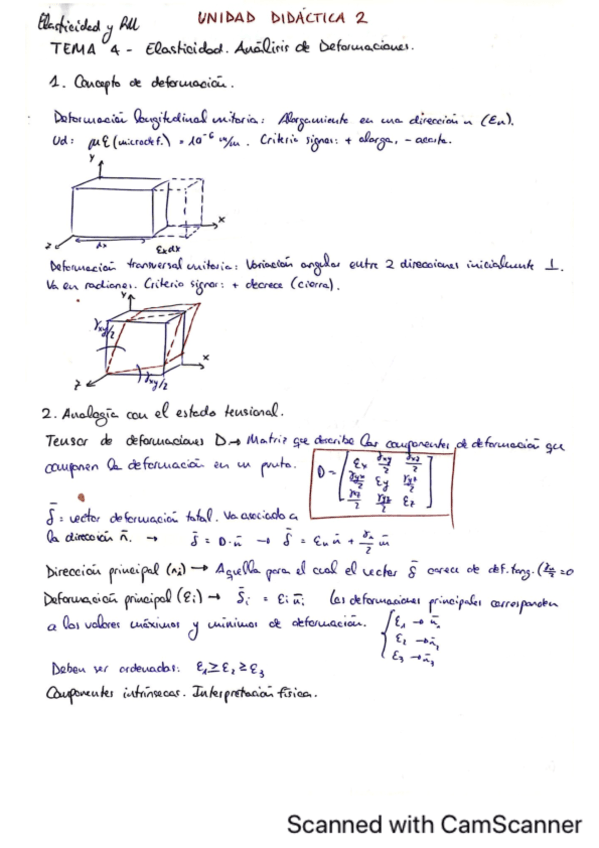 Elasticidad y RM
UNIDAD DIDÁCTICA 2
TEMA 4 - Elasticidad. Análisis de Deformaciones.
1. Concepto de deformación.
Deformación longitudinal unitaria: Alargamiento en una dirección n (εn).
Ud: με (microdef.) = 10⁻⁶ m/m. Criterio signos: + alarga, - acorta.
y
x
z
dx
εxdx
Deformación transversal unitaria: Variación angular entre 2 direcciones inicialmente ⊥.
Va en radianes. Criterio signos: + decrece (cierra).
y
γxy/2
x
z
γxy/2
2. Analogía con el estado tensional.
Tensor de deformaciones D → Matriz que describe las componentes de deformación que
componen la deformación en un punto.
D = [εx γxy/2 γxz/2
γxy/2 εy γyz/2
γxz/2 γyz/2 εz]
δ̄ = vector deformación total. Va asociado a
la dirección n̄. → δ̄ = D·n̄ → δ̄ = εn n̄ + γn/2 m̄
Dirección principal (ni) → Aquella para el cual el vector δ̄ carece de def. tang. (γn/2 = 0
Deformación principal (εi) → δ̄i = εi n̄i Las deformaciones principales corresponden
a los valores máximos y mínimos de deformación. { ε1 → n̄1
ε2 → n̄2
ε3 → n̄3
Deben ser ordenadas: ε1 ≥ ε2 ≥ ε3
Componentes intrínsecas. Interpretación física.
Scanned with CamScanner